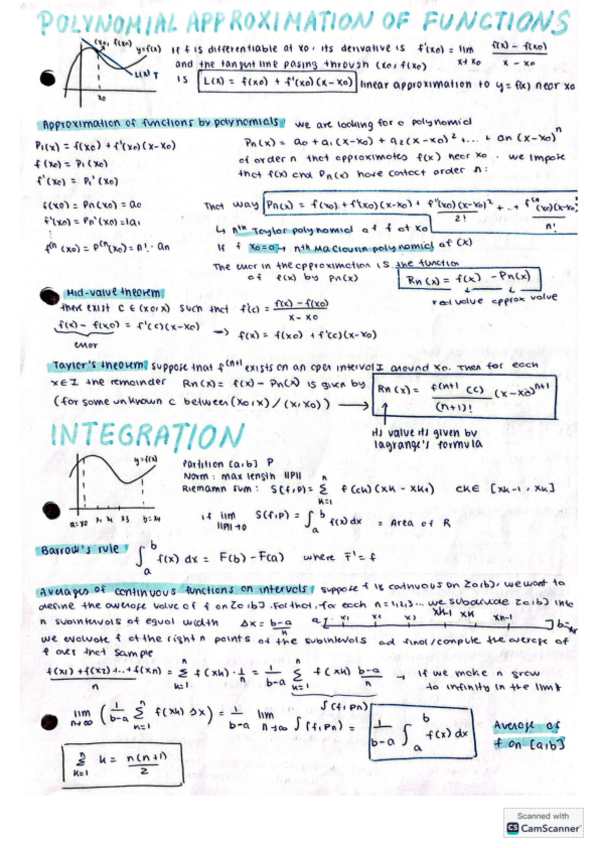 POLYNOMIAL APPROXIMATION OF FUNCTIONS
(x0, f(x0)) y=f(x)
L(x)
x0
If f is differentiable at x0, its derivative is f'(x0) = lim x→x0 f(x) - f(x0) / x - x0
and the tangent line pasing through (x0, f(x0))
is L(x) = f(x0) + f'(x0)(x-x0) linear approximation to y= f(x) near x0
Approximation of functions by polynomials we are looking for a polynomial
P1(x) = f(x0) + f'(x0)(x-x0)
Pn(x) = a0 + a1(x-x0) + a2(x-x0)² + ... + an(x-x0)^n
f(x0) = P1(x0)
of order n that approximates f(x) near x0. we impose
f'(x0) = P1'(x0)
that f(x) and Pn(x) have contact order n:
f(x0) = Pn(x0) = a0
f'(x0) = Pn'(x0) = 1a1
⋮
f^(n (x0) = P^(n(x0) = n! · an
That way Pn(x) = f(x0) + f'(x0)(x-x0) + f''(x0)(x-x0)²/2! + ... + f^(n(x0)(x-x0)^n/n!
↳ nth Taylor polynomial of f at x0
If x0=0 → nth MaClaurin polynomial of (x)
The error in the approximation is the function
of f(x) by Pn(x) Rn(x) = f(x) - Pn(x)
real value approx value
Mid-value theorem
there exist c ∈ (x0,x) such that f'(c) = f(x) - f(x0) / x - x0
f(x) - f(x0) = f'(c)(x-x0) ⟶ f(x) = f(x0) + f'(c)(x-x0)
error
Taylor's theorem suppose that f^(n+1 exists on an open interval I around x0. Then for each
x∈I the remainder Rn(x) = f(x) - Pn(x) is given by Rn(x) = f^(n+1 (c) / (n+1)! (x-x0)^n+1
(for some unknown c between (x0,x) / (x,x0)) ⟶
its value its given by
lagrange's formula
INTEGRATION
y=f(x)
Partition [a,b] P
Norm: max length ||P||
Riemann sum: S(f,P) = Σ k=1 n f(ck)(xk - xk-1) ck∈ [xk-1, xk]
a=x0 x1 x2 x3 b=x4
if lim ||P||→0 S(f,P) = ∫ a b f(x)dx = Area of R
Barrow's rule ∫ a b f(x) dx = F(b) - F(a) where F' = f
Averages of continuous functions on intervals suppose f is continuous on [a,b], we want to
define the average value of f on [a,b]. For that, for each n = 1,2,3... we subdivide [a,b] into
n subintervals of equal width Δx = b-a / n a x1 xk-1 xk xn-1 b=xn
we evaluate f at the right n points of the subintervals and find/compute the average of
f over that sample
f(x1) + f(x2) + ... + f(xn) / n = Σ k=1 n f(xk) · 1/n = 1/b-a Σ k=1 n f(xk) b-a/n → If we make n grow
to infinity in the limit
S(f,Pn)
lim n→∞ (1/b-a Σ k=1 n f(xk) Δx) = 1/b-a lim n→∞ S(f,Pn) = 1/b-a ∫ a b f(x)dx
Average of
f on [a,b]
Σ k=1 n k = n(n+1) / 2
Scanned with
CS CamScanner